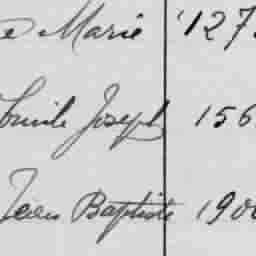 e Marie 127
Emile Joseph 156
Jean Baptiste 190